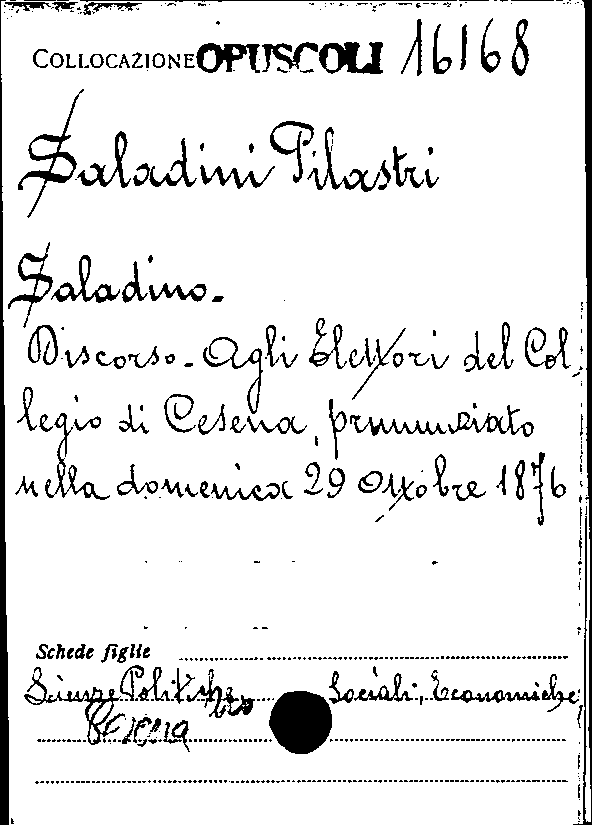 COLLOCAZIONE OPUSCOLI 16168
Saladini Pilastri
Saladino.
Discorso. Agli Elettori del Col,
legio di Cesena, pronunziato
nella domenica 29 Ottobre 1876
Schede figlie
Scienze Politiche Sociali, Economiche
Cesena